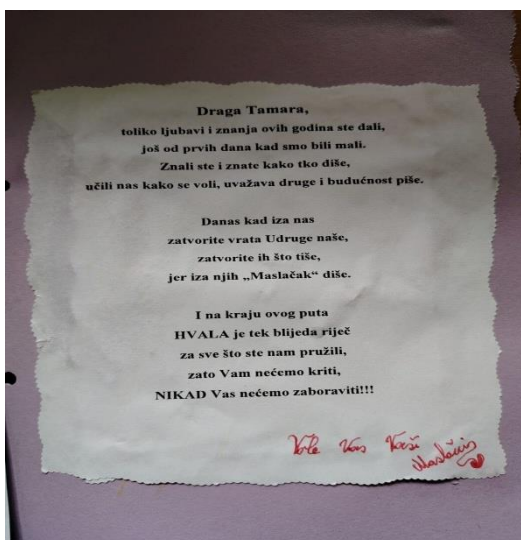 Draga Tamara,
toliko ljubavi i znanja ovih godina ste dali,
još od prvih dana kad smo bili mali.
Znali ste i znate kako tko diše,
učili nas kako se voli, uvažava druge i budućnost piše.
Danas kad iza nas
zatvorite vrata Udruge naše,
zatvorite ih što tiše,
jer iza njih „Maslačak“ diše.
I na kraju ovog puta
HVALA je tek blijeda riječ
za sve što ste nam pružili,
zato Vam nećemo kriti,
NIKAD Vas nećemo zaboraviti!!!
Vole Vas Vaši
Maslačci